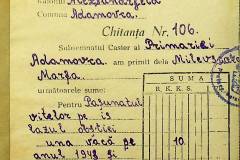 Comuna Adamovca.
Chitanța Nr. 106.
Subsemnatul Casier al Primăriei
Adamovca am primit dela
Marfa.
SUMA
următoarele sume:
R. K. K. S.
Pentru Pașunatul
vitelor pe is
lazul obștiei
una vacă pe 10
anul 1943 și